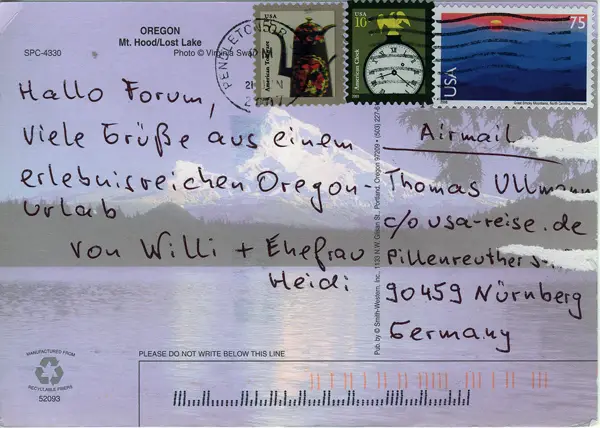 OREGON
Mt. Hood/Lost Lake
SPC-4330
Photo © Virginia Swa
PENDLETON OR
USA
American Toleware
USA
10
American Clock
75
USA
Great Smoky Mountains, North Carolina, Tennessee
Hallo Forum,
viele Grüße aus einem
erlebnisreichen Oregon-
Urlab
von Willi + Ehefrau
Heidi
Airmail
Thomas Ullmann
c/o usa-reise.de
Pillenreuther S
90459 Nürnberg
Germany
Pub. by © Smith-Western, Inc., 1133 N.W. Glisan St., Portland, Oregon 97209 • (503)
PLEASE DO NOT WRITE BELOW THIS LINE
MANUFACTURED FROM
RECYCLABLE FIBERS
52093